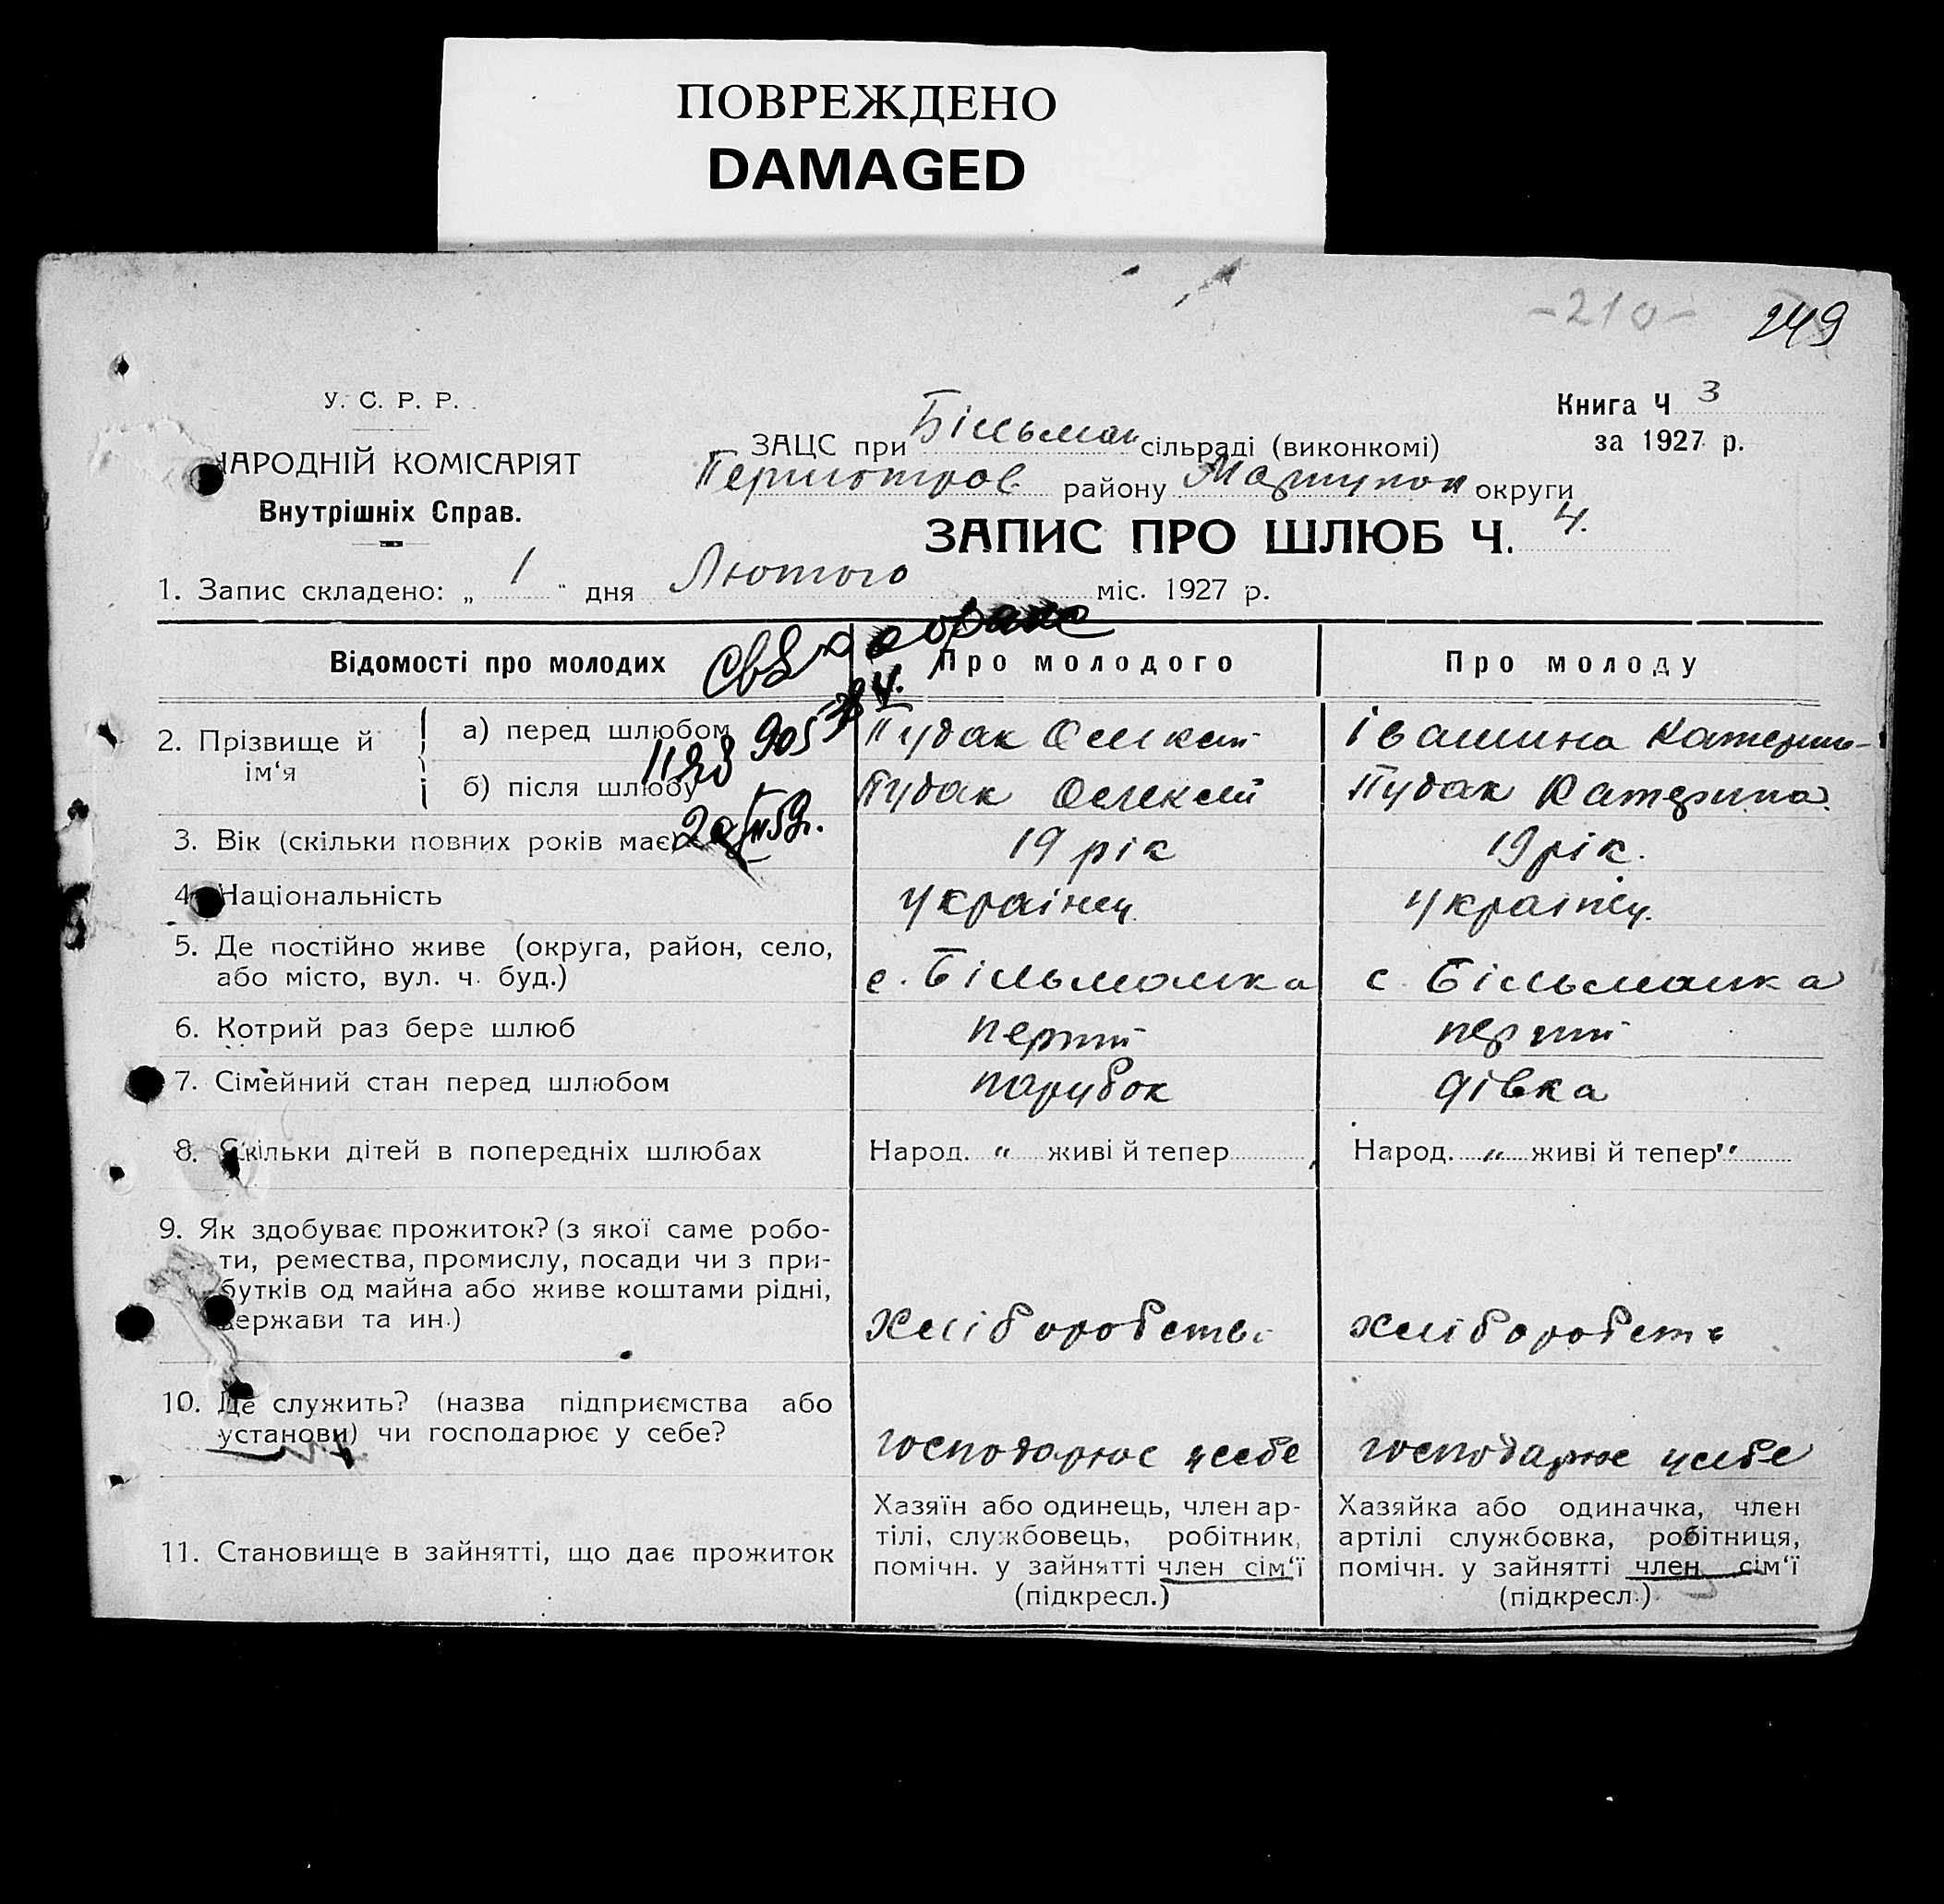 ПОВРЕЖДЕНО
DAMAGED
-210-
249
У. С. Р. Р.
НАРОДНІЙ КОМІСАРІЯТ
Внутрішніх Справ.
Книга Ч 3
за 1927 р.
ЗАЦС при Більман сільраді (виконкомі)
району Маріупол округи
ЗАПИС ПРО ШЛЮБ Ч. 4.
1. Запис складено: „ 1 " дня Лютого міс. 1927 р.
Відомості про молодих
Про молодого
Про молоду
2. Прізвище й ім‘я
а) перед шлюбом
Пудак Олексій
Івашина Катерина
б) після шлюбу
Пудак Олексій
Пудак Катерина
3. Вік (скільки повних років має)
19 рік
19 рік.
4. Національність
українец
українец.
5. Де постійно живе (округа, район, село,
або місто, вул. ч. буд.)
с. Більманка
с. Більманка
6. Котрий раз бере шлюб
перший
перший
7. Сімейний стан перед шлюбом
парубок
дівка
8. Скільки дітей в попередніх шлюбах
Народ. " живі й тепер
Народ. " живі й тепер "
9. Як здобуває прожиток? (з якої саме робо-
ти, ремества, промислу, посади чи з при-
бутків од майна або живе коштами рідні,
держави та ин.)
Хліборобство
хліборобств
10. Де служить? (назва підприємства або
установи) чи господарює у себе?
господарює у себе
господарює у себе
11. Становище в зайнятті, що дає прожиток
Хазяїн або одинець, член ар-
тілі, службовець, робітник,
помічн. у зайнятті член сім‘ї
(підкресл.)
Хазяйка або одиначка, член
артілі службовка, робітниця,
помічн. у зайнятті член сім‘ї
(підкресл.)